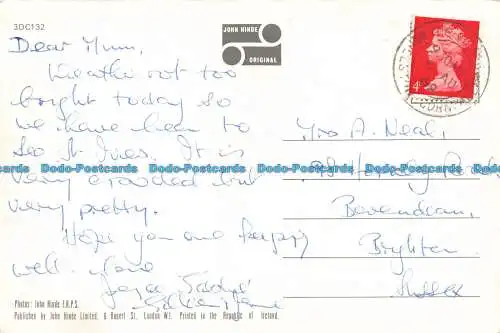 3DC132
JOHN HINDE
ORIGINAL
4
Dear Mum,
Weather not too
bright today so
we have been to
see St Ives. It is
very crowded but
very pretty.
Hope you are keeping
well. Love
Mrs A. Neal,
Road
Bevendean,
Brighton
Sussex
Dodo-Postcards Dodo-Postcards Dodo-Postcards Dodo-Postcards
Photos: John Hinde F.R.P.S.
Published by John Hinde Limited, 6 Rupert St., London W1. Printed in the Republic of Ireland.